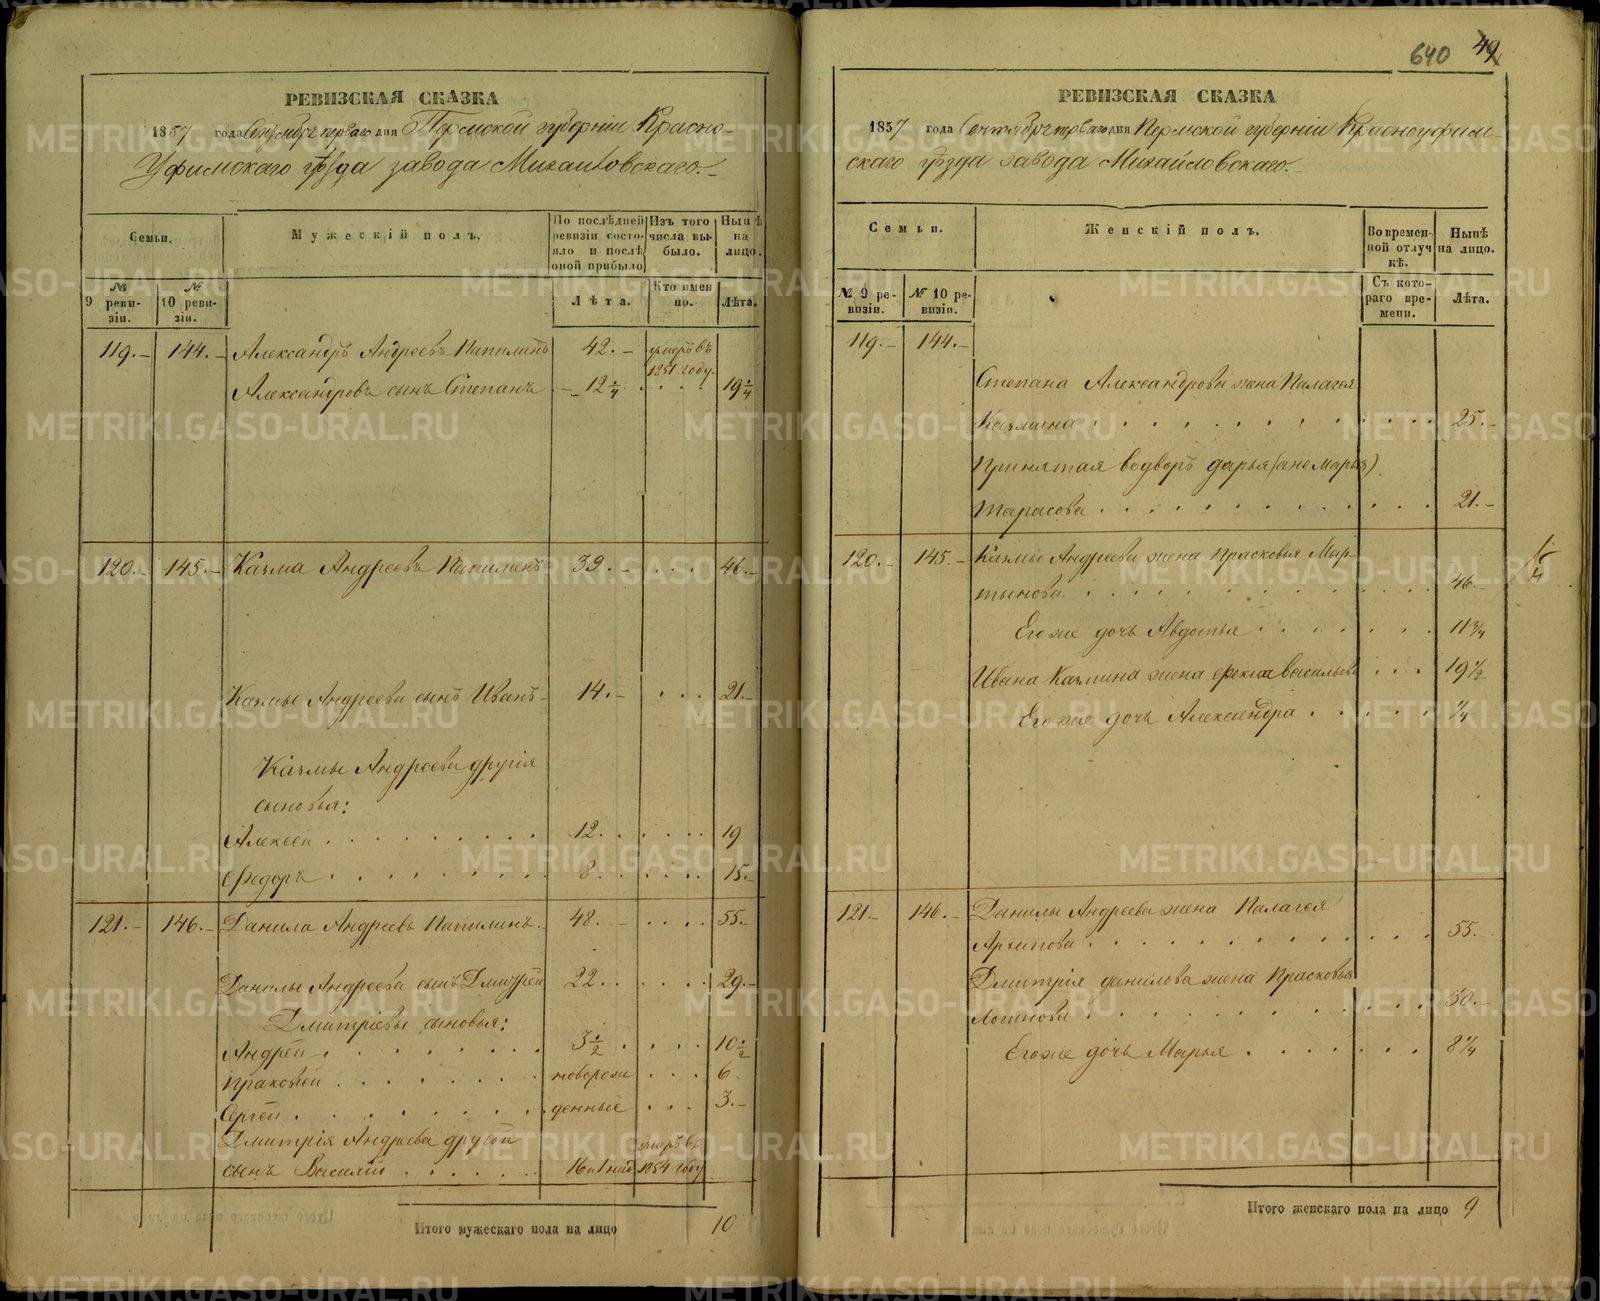 640 49
РЕВИЗСКАЯ СКАЗКА
1857 года Сентября перваго дня Пермской губерніи Красно-
Уфимскаго уѣзда завода Михайловскаго.
Семьи.
Мужескій полъ.
По послѣдней ревизіи состояло и послѣ оной прибыло
Изъ того числа выбыло.
Нынѣ на лицо.
№ 9 ревизіи.
№ 10 ревизіи.
Лѣта.
Кто именно.
Лѣта.
119. 144. Александръ Андреевъ Папилинъ 42. умеръ въ 1851 году.
Александровъ сынъ Степанъ 12 1/4 . . . . 19 1/4
120. 145. Казма Андреевъ Папилинъ 39. . . . 46.
Казмы Андреева сынъ Иванъ 14. . . . 21.
Казмы Андреева другія
сыновья:
Алексей . . . . . . . . 12. . . . . 19
Федоръ . . . . . . . . 8. . . . . 15.
121. 146. Данила Андреевъ Папилинъ. 48. . . . . 55.
Данилы Андреева сынъ Дмитрей 22. . . . . 29.
Дмитріевы сыновья:
Андрей . . . . . . . . 3 1/2 . . . . 10 1/2
. . . . . . . новорож . . . 6.
Сергей . . . . . . . . денные . . . 3.
Дмитрія Андреева другой
сынъ Василій . . . . . умеръ въ 1854 году
Итого мужескаго пола на лицо 10
РЕВИЗСКАЯ СКАЗКА
1857 года Сентября перваго дня Пермской губерніи Красноуфим
скаго уѣзда завода Михайловскаго.
Семьи.
Женскій полъ.
Во временной отлучкѣ.
Нынѣ на лицо.
№ 9 ревизіи.
№ 10 ревизіи.
Съ котораго времени.
Лѣта.
119. 144.
Степана Александрова жена Палагея
Казмина . . . . . . . . . . . . 25.
Принятая водворъ дарья (анемарья)
Тарасова . . . . . . . . . . . . 21.
120. 145. Казмы Андреева жена Прасковья Мар-
тынова . . . . . . . . . . . . 46.
Егоже дочь Авдотья . . . . . . . 11 3/4
Ивана Казмина жена Фекла васильева . . . 19 1/2
Егоже дочь Александра . . . . . 1/4
121. 146. Данилы Андреева жена Палагея
Архипова . . . . . . . . . . . . 55.
Дмитрія данилова жена Прасковья
Логинова . . . . . . . . . . . 30.
Егоже дочь Марья . . . . . . . 8 1/4
Итого женскаго пола на лицо 9
METRIKI.GASO-URAL.RU